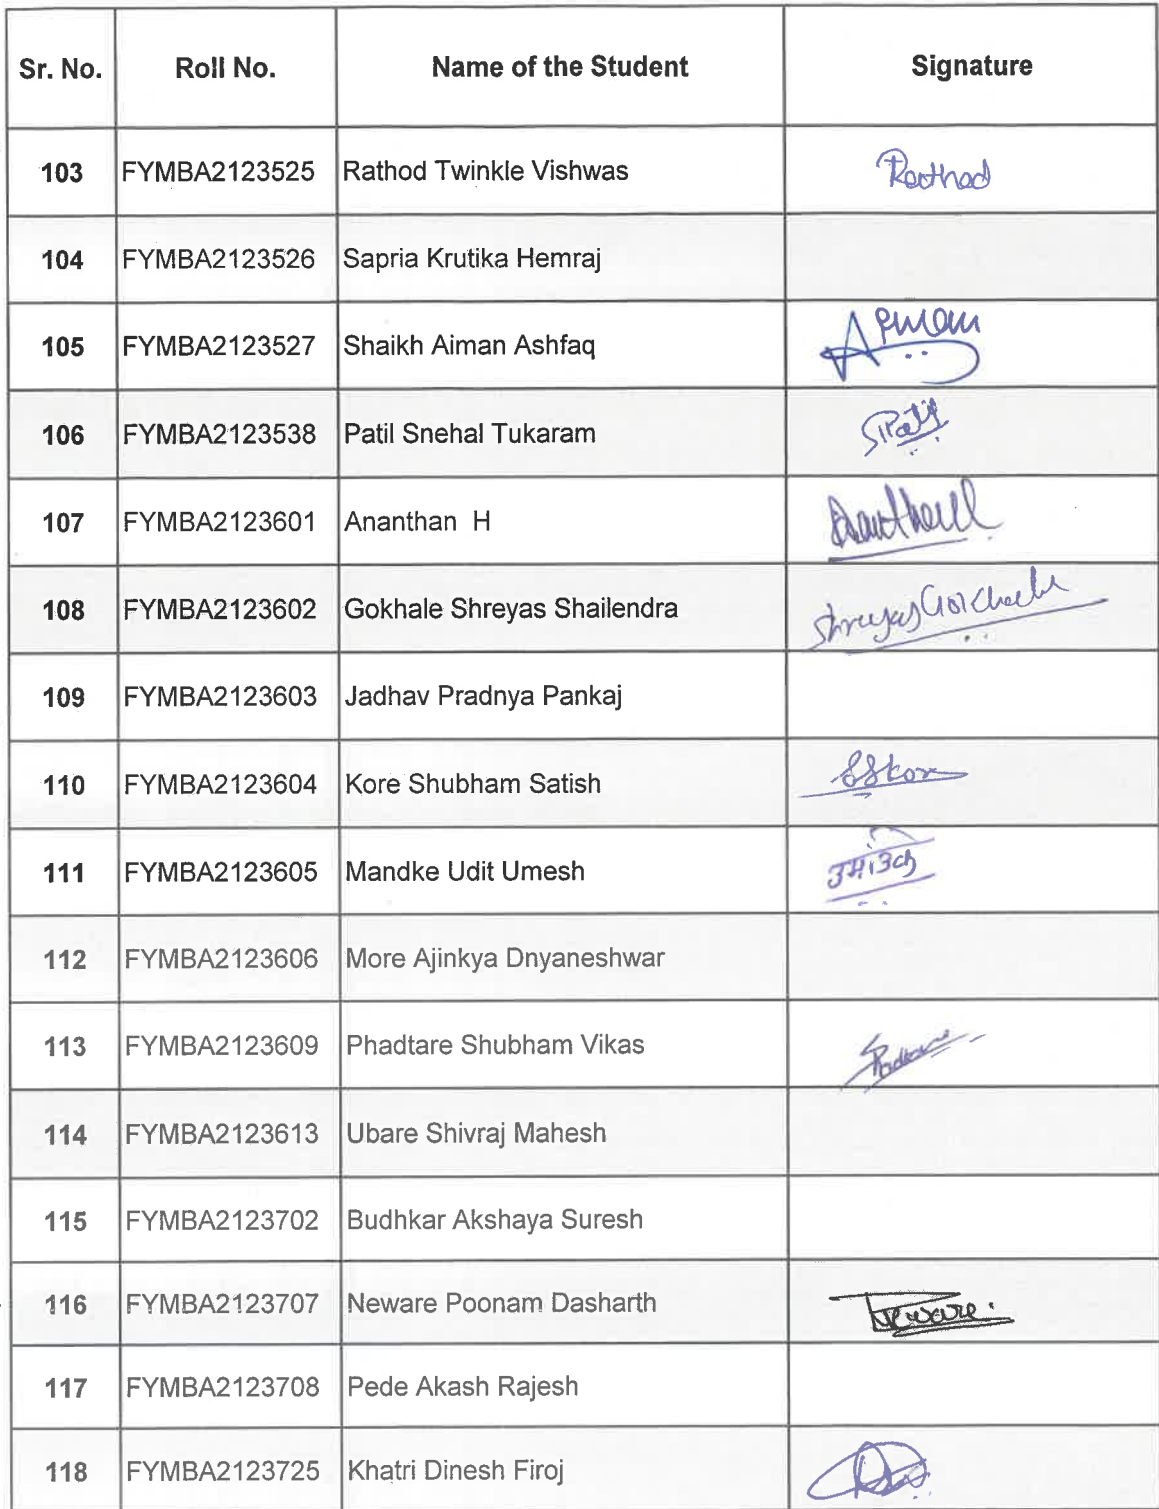 Sr. No. Roll No. Name of the Student Signature
103 FYMBA2123525 Rathod Twinkle Vishwas Rathod
104 FYMBA2123526 Sapria Krutika Hemraj
105 FYMBA2123527 Shaikh Aiman Ashfaq
106 FYMBA2123538 Patil Snehal Tukaram
107 FYMBA2123601 Ananthan H
108 FYMBA2123602 Gokhale Shreyas Shailendra
109 FYMBA2123603 Jadhav Pradnya Pankaj
110 FYMBA2123604 Kore Shubham Satish
111 FYMBA2123605 Mandke Udit Umesh
112 FYMBA2123606 More Ajinkya Dnyaneshwar
113 FYMBA2123609 Phadtare Shubham Vikas
114 FYMBA2123613 Ubare Shivraj Mahesh
115 FYMBA2123702 Budhkar Akshaya Suresh
116 FYMBA2123707 Neware Poonam Dasharth
117 FYMBA2123708 Pede Akash Rajesh
118 FYMBA2123725 Khatri Dinesh Firoj